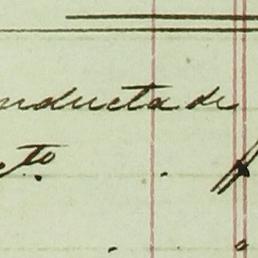 nducta de
cto